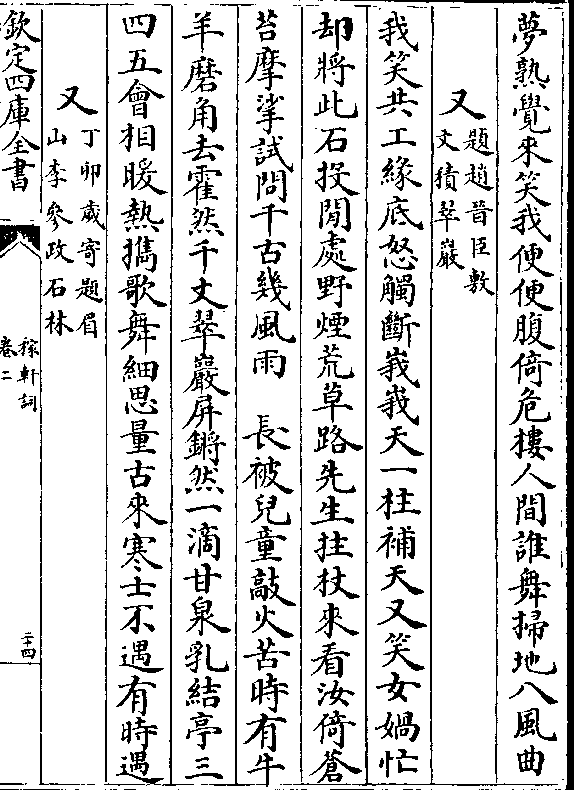 夢熟覺來笑我便便腹倚危樓人間誰舞掃地八風曲
又
題趙晉臣敷
文積翠巖
我笑共工緣底怒觸斷峩峩天一柱補天又笑女媧忙
却將此石投閒處野煙荒草路先生拄杖來看汝倚蒼
苔摩挲試問千古幾風雨　長被兒童敲火苦時有牛
羊磨角去霍然千丈翠巖屏鏘然一滴甘泉乳結亭三
四五會相暖熱擕歌舞細思量古來寒士不遇有時遇
又
丁卯歲寄題眉
山李參政石林
欽定四庫全書
稼軒詞
卷二
二十四